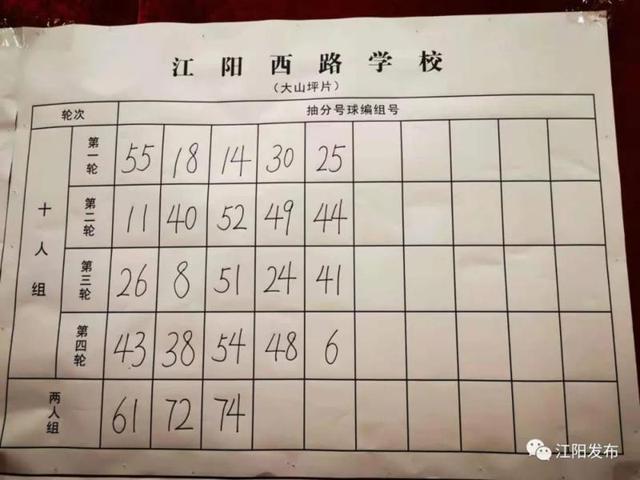 江阳西路学校
（大山坪片）
轮次 抽分号球编组号
十人组
第一轮 55 18 14 30 25
第二轮 11 40 52 49 44
第三轮 26 8 51 24 41
第四轮 43 38 54 48 6
两人组 61 72 74
江阳发布